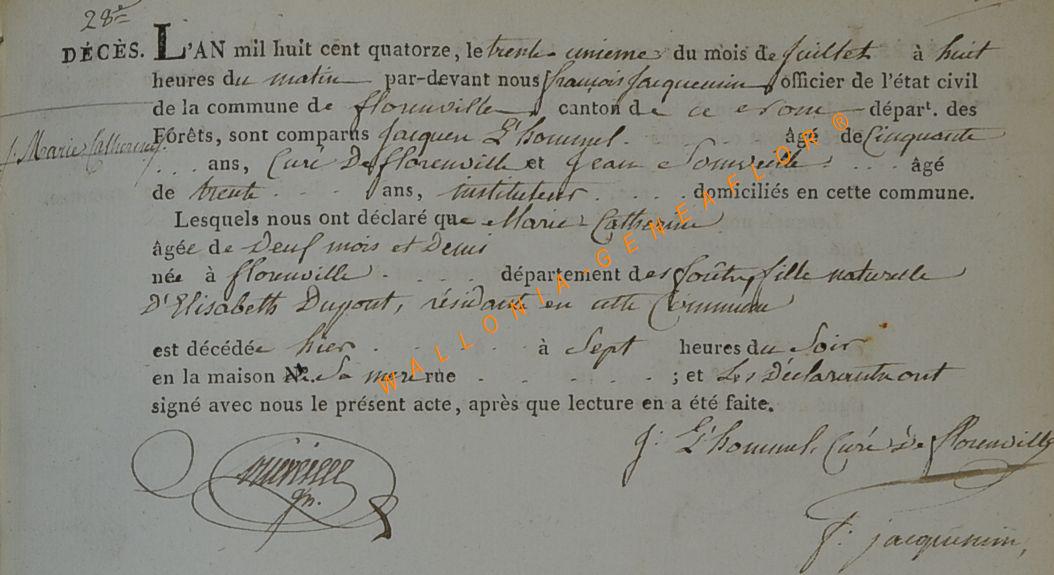 28e
DÉCÈS. L'AN mil huit cent quatorze, le trente-unieme du mois de Juillet à huit
heures du matin par-devant nous françois Jacquemin officier de l'état civil
de la commune de florenville canton de ce nom départ. des
Forêts, sont comparus Jacques L'hommel. âgé de Cinquante
Marie Catherine
ans, Curé De florenville et Jean âgé
de trente ans, instituteur domiciliés en cette commune.
Lesquels nous ont déclaré que Marie-Catherine
âgée de Deux mois et Demi
née à florenville département des forêts, fille naturelle
D'Elisabeth Dupont, résidant en cette Commune
est décédée hier à Sept heures du Soir
en la maison N°. Sa mere rue ; et Les Déclarants ont
signé avec nous le présent acte, après que lecture en a été faite.
J: L'hommel Curé De florenville
f: jacquemin,
WALLONIA-GENEAFLOR®